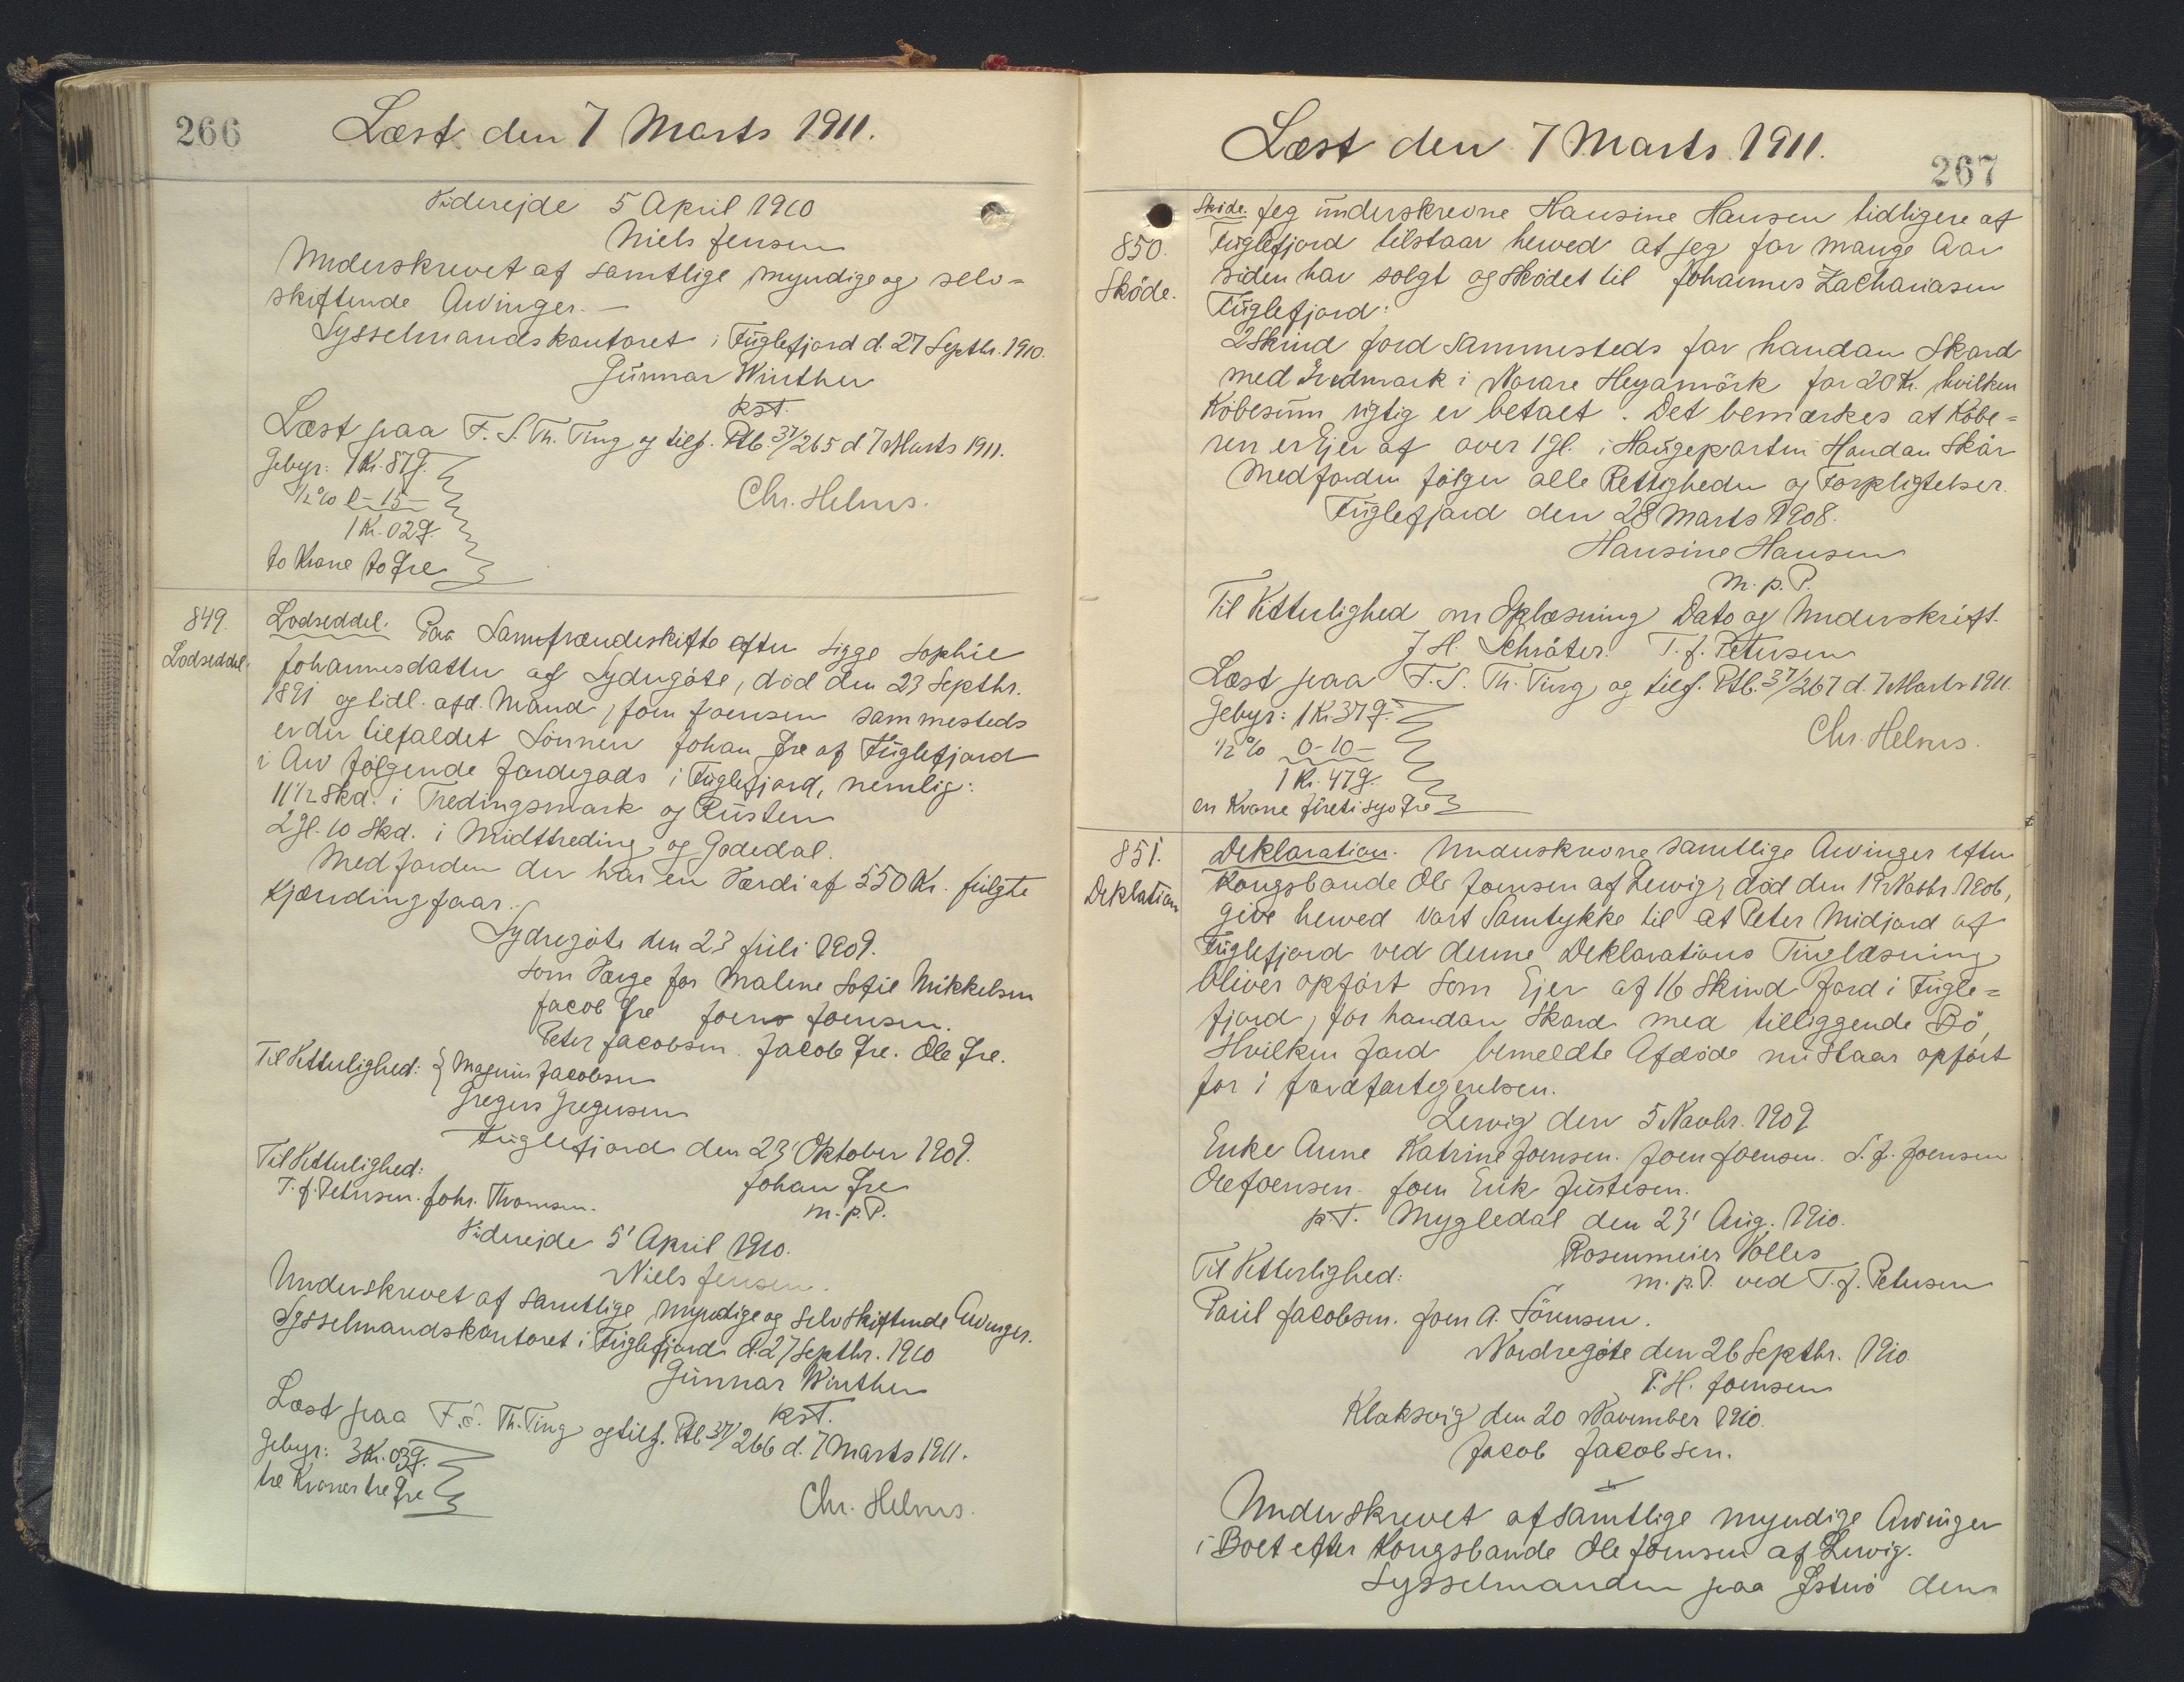 266
Læst den 7 Marts 1911.
Viderejde 5 April 1910
Niels Jensen
Underskrevet af samtlige myndige og selv=
skiftende Arvinger.—
Sysselmandskontoret i Fuglefjord d. 27 Septbr. 1910.
Gunnar Winther
kst.
Læst paa F. S. Th. Ting og tilf. Ptb. 37/265 d 7 Marts 1911.
Gebyr: 1 Kr. 87
1/2 % 0-15-
1 Kr. 02
to Krone to Øre
Chr. Helms.
849.
Lodseddel.
Lodseddel. Paa Samfrændeskifte efter Sigge Sophie
Johannesdatter af Sydregöte, död den 23 Septbr.
1891 og tidl. afd. Mand, Joen Joensen sammesteds
er der tilfaldet Sönnen Johan Øre af Fuglefjord
i Arv fölgende Jordegods i Fuglefjord, nemlig:
11 1/2 Skd. i Tredingsmark og Rusten
2 Gl. 10 Skd. i Midttreding og Godedal.
Med Jorden der har en Værdi af 550 Kr. fulgte
Kjænding faar.
Sydregöte den 23 Juli 1909.
som Værge for Malene Sofie Mikkelsen
Jacob Øre Joens Joensen.
Peter Jacobsen. Jacob Øre. Ole Øre.
Til Vitterlighed: { Magnus Jacobsen
Gregers Gregersen
Fuglefjord den 23' Oktober 1909.
Til Vitterlighed:
T. J. Petersen. Johs. Thomsen.
Johan Øre
m. p. P.
Viderejde 5' April 1910.
Niels Jensen.
Underskrevet af samtlige myndige og selvskiftende Arvinger.
Sysselmandskontoret i Fuglefjord d. 27 Septbr. 1910
Gunnar Winther
kst.
Læst paa F. S. Th. Ting og tilf. Ptb. 37/266 d. 7 Marts 1911.
Gebyr: 3 Kr. 03
tre Kroner tre Øre
Chr. Helms.
Læst den 7 Marts 1911.
267
850.
Sköde.
Sköde. Jeg underskrevne Hansine Hansen tidligere af
Fuglefjord tilstaar herved at jeg for mange Aar
siden har solgt og skødet til Johannes Zachariasen
Fuglefjord:
2 Skind Jord sammesteds for handan Skard
med Indmark i Norare Heyamörk for 20 Kr. hvilken
Köbesum rigtig er betalt. Det bemærkes at Købe=
ren er Ejer af over 1 Gl. i Haugeparten Handan Skår
Med Jorden fölger alle Rettigheder og Forpligtelser.
Fuglefjord den 28 Marts 1908.
Hansine Hansen
m. p. P.
Til Vitterlighed om Oplæsning Dato og Underskrift.
J. H. Schröter. T. J. Petersen
Læst paa F. S. Th. Ting og tilf. Ptb. 37/267 d. 7 Marts 1911.
Gebyr: 1 Kr. 37
1/2 % 0-10-
1 Kr. 47
en Krone fireti syv Øre
Chr. Helms.
851.
Deklation
Deklaration. Underskrevne samtlige Arvinger efter
Kongsbonde Ole Joensen af Lervig, död den 19 Novbr. 1906,
give herved vort Samtykke til at Peter Midjord af
Fuglefjord ved denne Deklarations Tinglæsning
bliver opfört som Ejer af 16 Skind Jord i Fugle=
fjord, for handan Skard med tilliggende Bö,
Hvilken Jord bemeldte Afdöde nu staar opfört
for i Jordfortegnelsen.
Lervig den 5 Novbr. 1909
Enke Anne Katrine Joensen. Joen Joensen. S. J. Joensen
Ole Joensen. Joen Erik Justesen.
p. T. Mygledal den 23' Aug. 1910.
Rosenmeier Volles
m. p. P. ved T. J. Petersen
Til Vitterlighed:
Paul Jacobsen. Joen A. Sörensen.
Nordregöte den 26 Septbr. 1910
P. H. Joensen
Klaksvig den 20 November 1910.
Jacob Jacobsen.
Underskrevet af samtlige myndige Arvinger
i Boet efter Kongsbonde Ole Joensen af Lervig.
Sysselmanden paa Østerö den